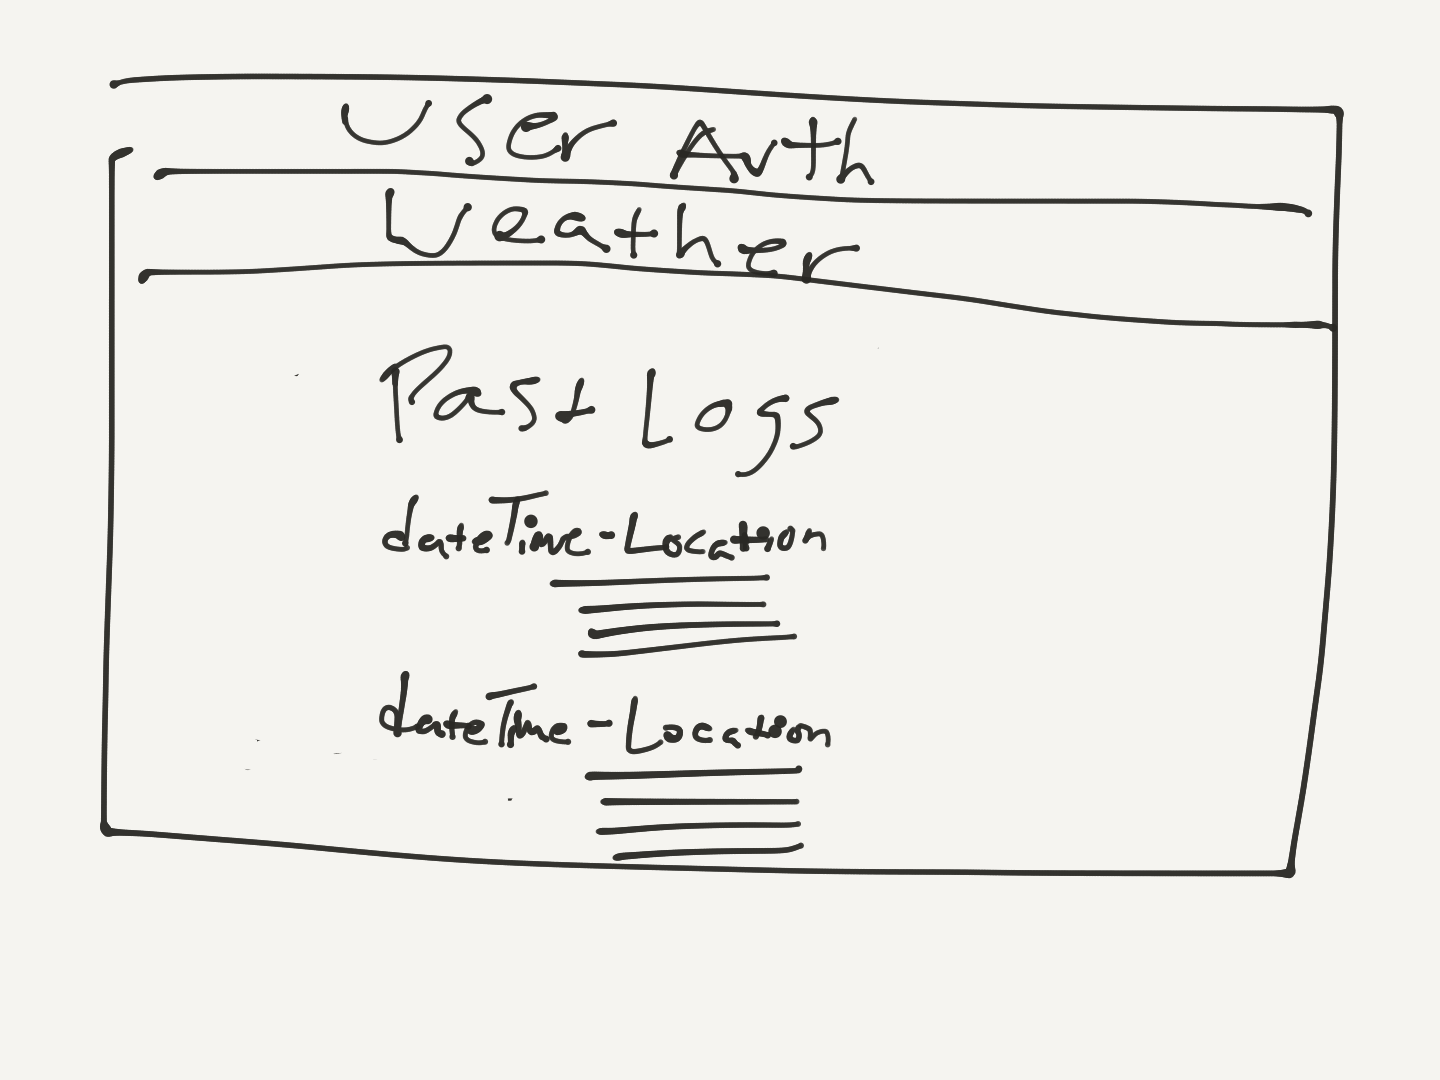 User Auth
Weather
Past Logs
dateTime-Location
dateTime-Location